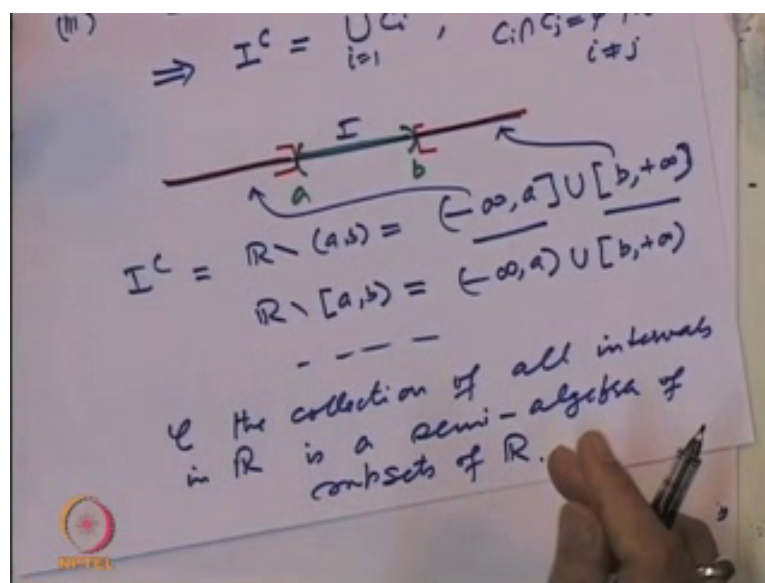 (III)
⇒ I^c = ∪_{i=1} C_i , C_i ∩ C_j = φ
i≠j
I
a b
I^c = ℝ \ (a,b) = (-∞, a] ∪ [b, +∞)
ℝ \ [a,b) = (-∞, a) ∪ [b, +∞)
- - - -
𝒞 the collection of all intervals
in ℝ is a semi-algebra of
subsets of ℝ.
NPTEL